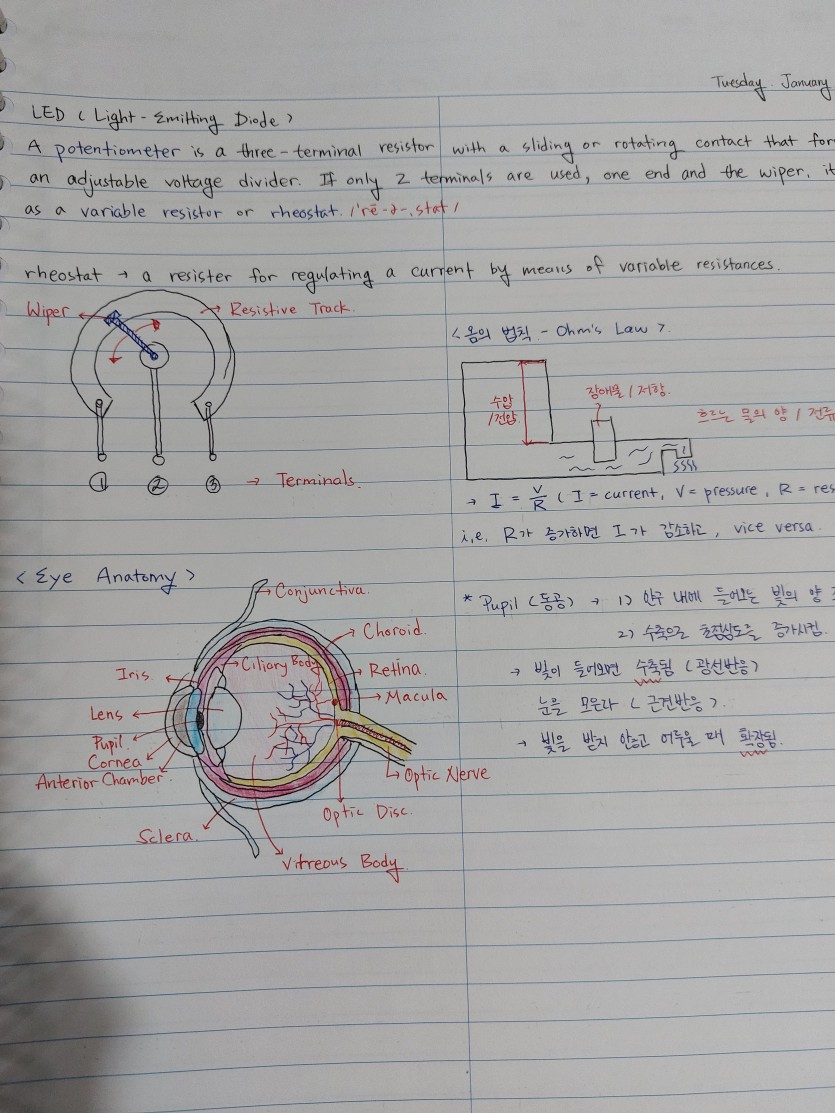 Tuesday. January
LED (Light-Emitting Diode)
A potentiometer is a three-terminal resistor with a sliding or rotating contact that for
an adjustable voltage divider. If only 2 terminals are used, one end and the wiper, it
as a variable resistor or rheostat. /'rē-ə-ˌstat/
rheostat → a resister for regulating a current by means of variable resistances.
Wiper
Resistive Track.
① ② ③ → Terminals.
<옴의 법칙 - Ohm's Law>
수압
/전압
장애물/저항.
흐르는 물의 양 / 전류
→ I = V/R ( I = current, V = pressure, R = res
i,e, R가 증가하면 I가 감소하고, vice versa.
<Eye Anatomy>
Conjunctiva.
Choroid.
Ciliary Body
Retina.
Macula
Iris.
Lens
Pupil
Cornea
Anterior Chamber.
Optic Nerve
Optic Disc.
Sclera.
Vitreous Body.
* Pupil (동공) → 1) 안구 내에 들어오는 빛의 양
2) 수축으로 초점심도를 증가시킴.
→ 빛이 들어오면 수축됨 (광선반응)
눈을 모은다 (근견반응).
→ 빛을 받지 않고 어두울 때 확장됨.